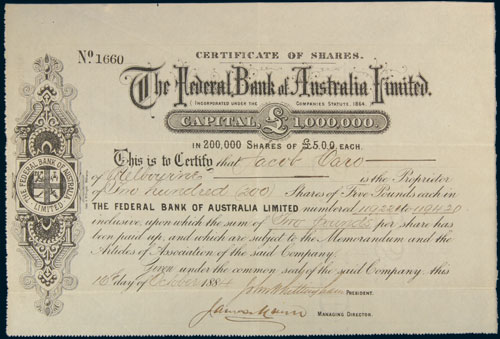 CERTIFICATE OF SHARES.
No 1660
The Federal Bank of Australia Limited.
(INCORPORATED UNDER THE COMPANIES STATUTE, 1864.
CAPITAL, £1,000,000.
IN 200,000 SHARES OF £5.0.0. EACH.
This is to Certify that Jacob Caro
of Melbourne is the Proprietor
of Two hundred (200) Shares of Five Pounds each in
THE FEDERAL BANK OF AUSTRALIA LIMITED numbered to
inclusive, upon which the sum of Two pounds per share has
been paid up, and which are subject to the Memorandum and the
Articles of Association of the said Company.
Given under the common seal of the said Company this
day of October 1884
PRESIDENT.
MANAGING DIRECTOR.
THE FEDERAL BANK OF AUSTRALIA
LIMITED